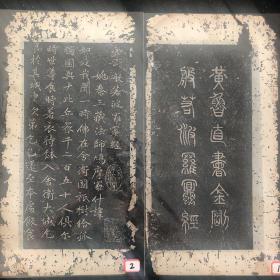 黃魯直書金剛
般若波羅蜜經
金剛般若波羅蜜經
姚秦三藏法師鳩摩羅什譯
如是我聞一時佛在舍衛國祇樹給孤
獨園與大比丘眾千二百五十人俱爾
時世尊食時著衣持鉢入舍衛大城乞
食於其城中次第乞已還至本處飯食
2